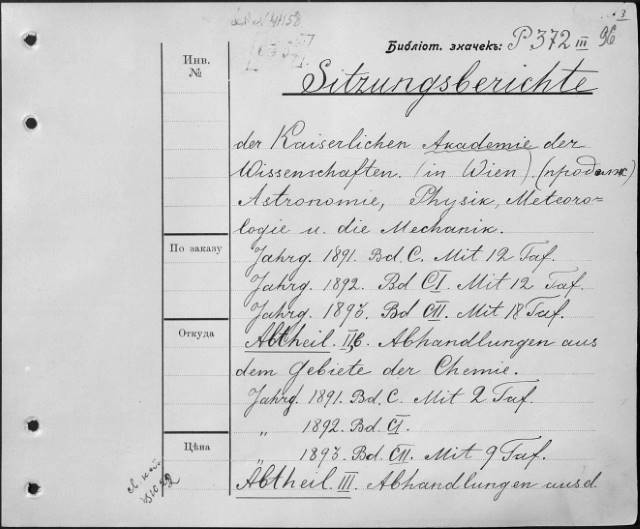 3
Библіот. значекъ: P 372 III 96
Инв. №
Sitzungsberichte
der Kaiserlichen Akademie der
Wissenschaften. (in Wien). (продолж)
Astronomie, Physik, Meteoro-
logie u. die Mechanik.
По заказу
Jahrg. 1891. Bd. C. Mit 12 Taf.
Jahrg. 1892. Bd CI. Mit 12 Taf.
Jahrg. 1893. Bd CII. Mit 18 Taf.
Откуда
Abtheil. II,b. Abhandlungen aus
dem Gebiete der Chemie.
Jahrg. 1891. Bd. C. Mit 2 Taf.
„ 1892. Bd. CI.
Цѣна
„ 1893. Bd. CII. Mit 9 Taf.
Abtheil. III. Abhandlungen aus d.